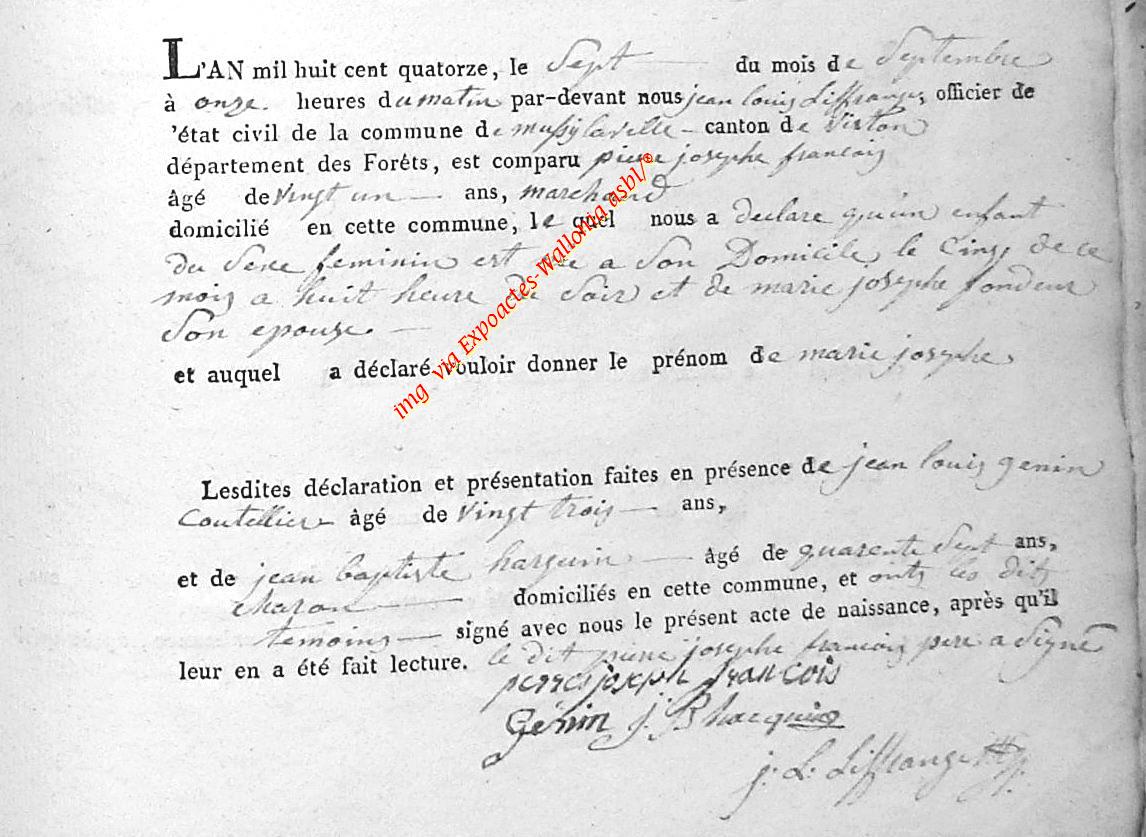 L'AN mil huit cent quatorze, le Sept du mois de Septembre
à onze heures du matin par-devant nous jean louis Liffrange, officier de
'état civil de la commune de mussy laville canton de Virton
département des Forêts, est comparu pierre josephe francois
âgé de Vingt un ans, marchand
domicilié en cette commune, le quel nous a declare qu'un enfant
du Sexe feminin est née a Son Domicile, le Cinq de ce
mois a huit heure du Soir et de marie josephe fondeur
Son epouse.
et auquel a déclaré vouloir donner le prénom de marie josephe,
Lesdites déclaration et présentation faites en présence de jean louis genin
Coutellier âgé de Vingt trois ans,
et de jean baptiste harquin âgé de quarente Sept ans,
charon domiciliés en cette commune, et ont les dits
temoins signé avec nous le présent acte de naissance, après qu'il
leur en a été fait lecture. le dit pierre josephe francois pere a Signé
pierre joseph francois
Génin J. B hacquin
j. L. Liffrange
img via Expoactes-Wallonia asbl/®